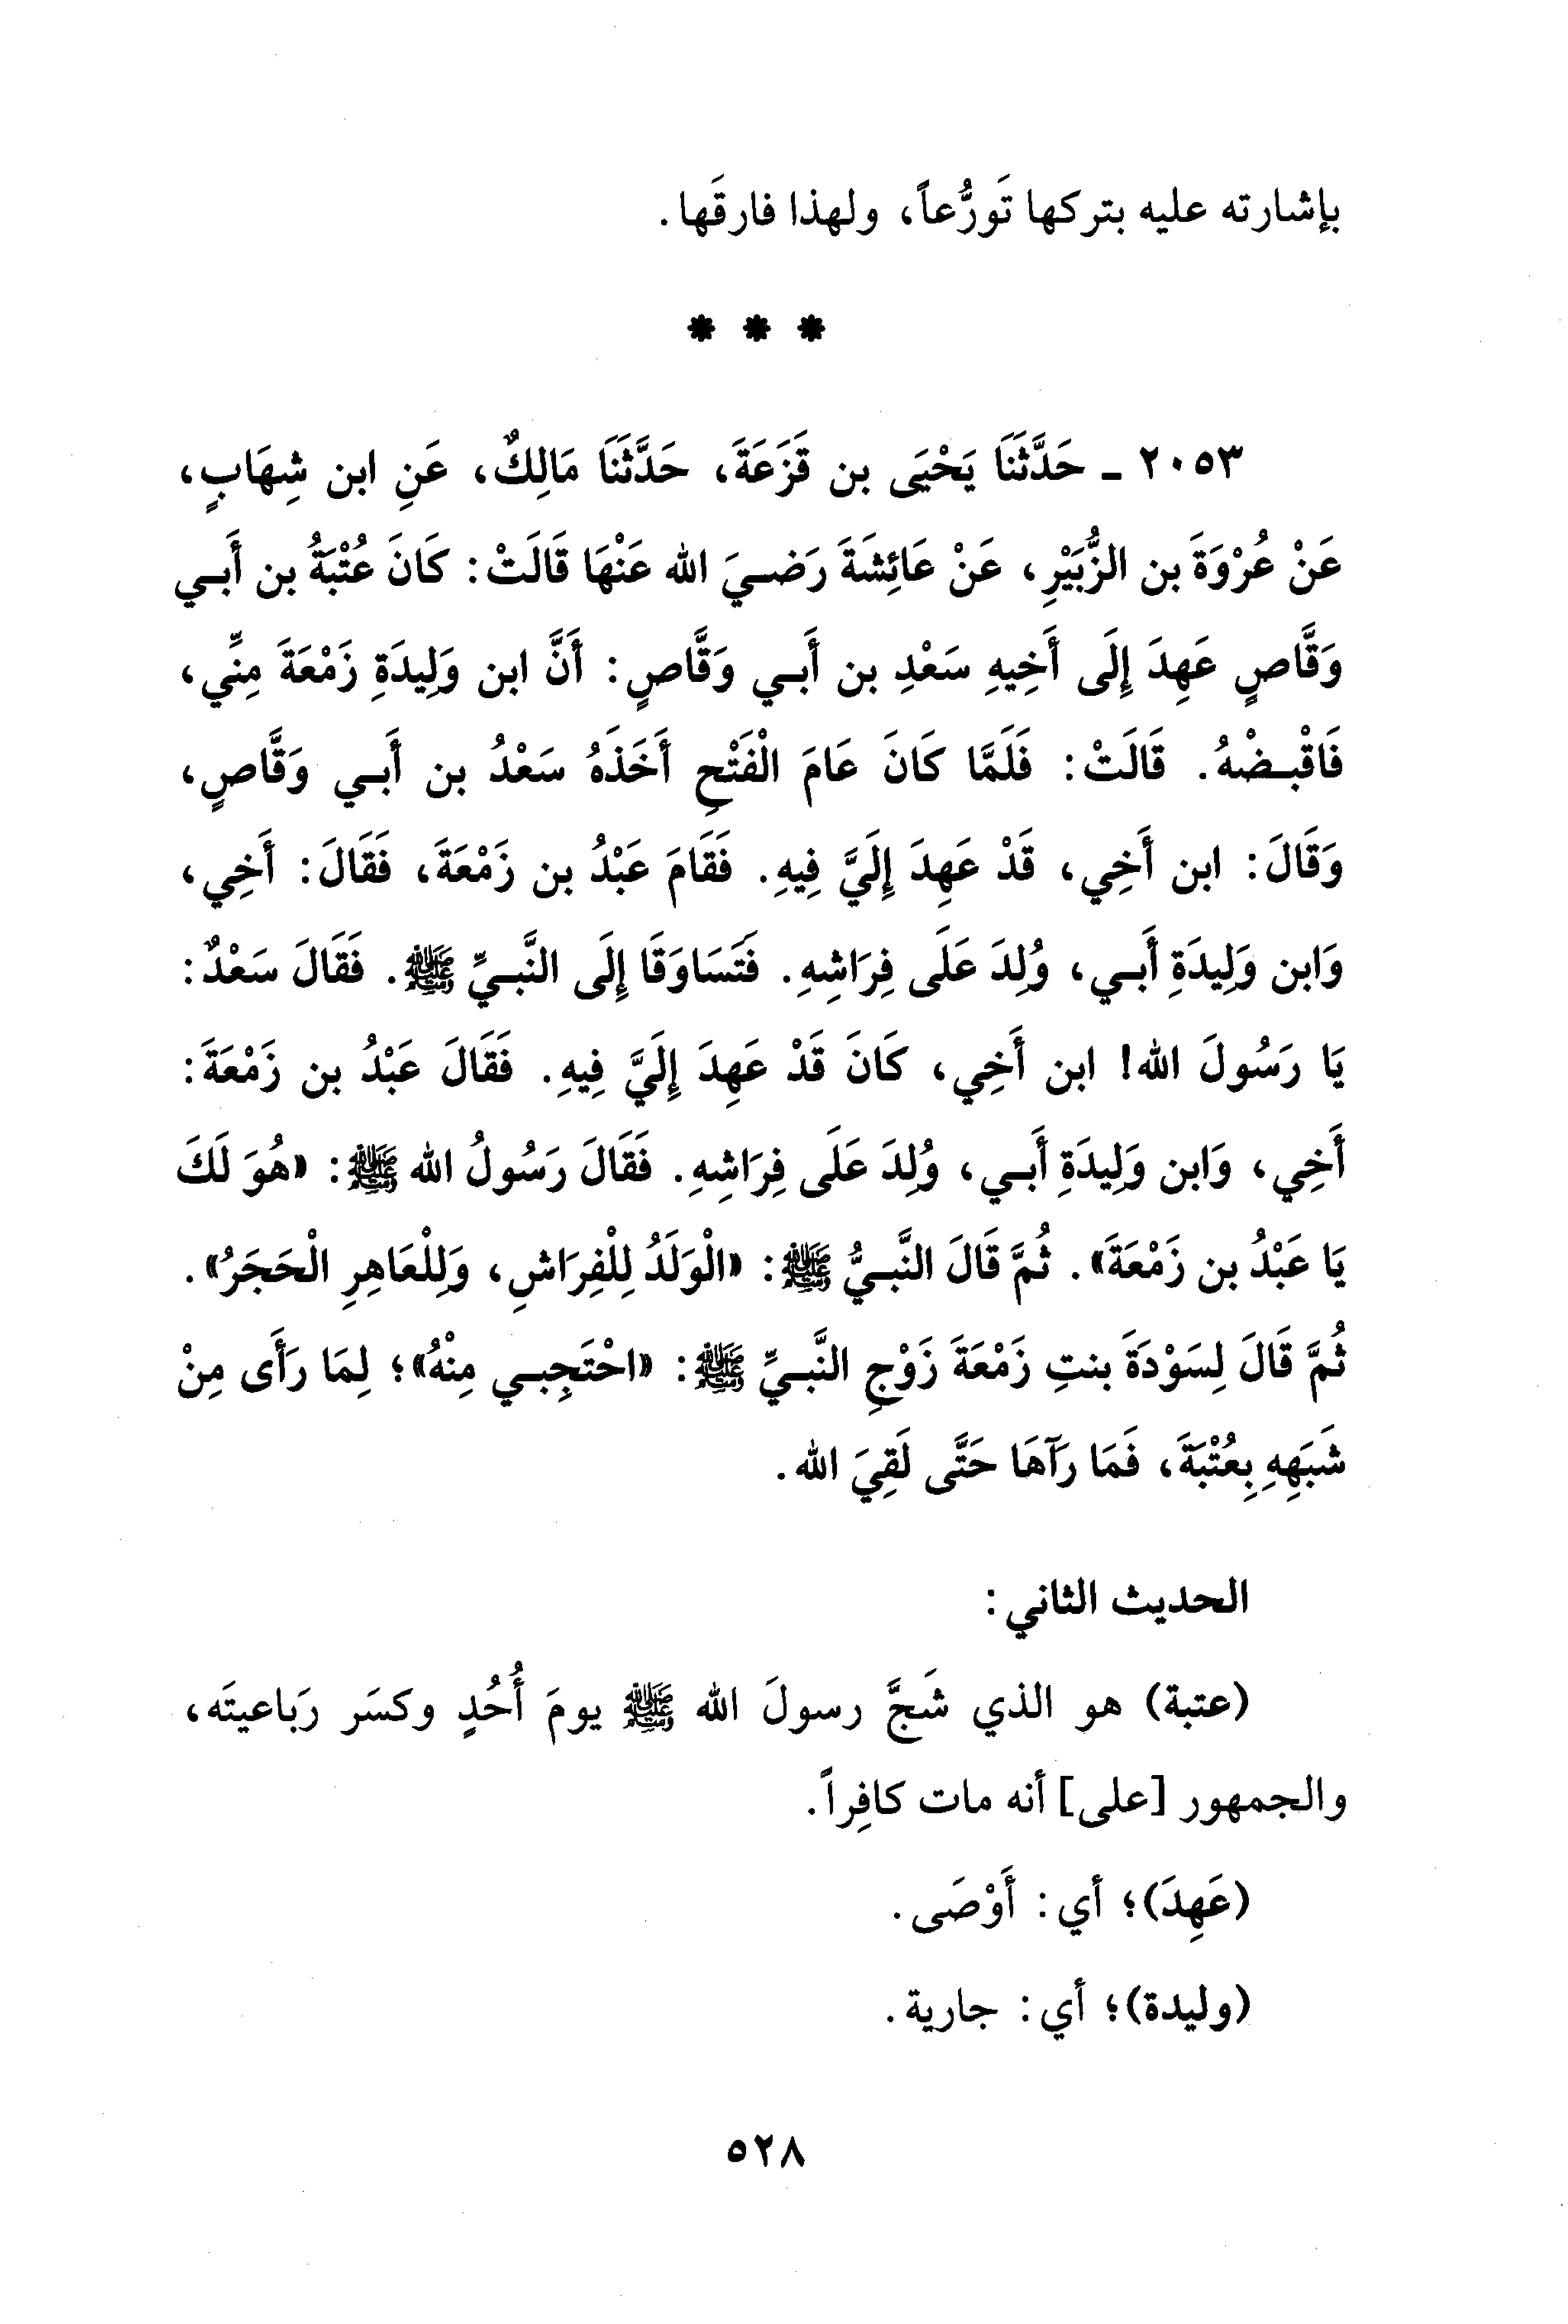 بإشارته عليه بتركها تَورُّعاً، ولهذا فارقَها.
* * *
٢٠٥٣ ـ حَدَّثَنَا يَحْيَى بن قَزَعَةَ، حَدَّثَنَا مَالِكٌ، عَنِ ابن شِهَابٍ،
عَنْ عُرْوَةَ بن الزُّبَيْرِ، عَنْ عَائِشَةَ رَضيَ الله عَنْهَا قَالَتْ: كَانَ عُتْبَةُ بن أَبي
وَقَّاصٍ عَهِدَ إِلَى أَخِيهِ سَعْدِ بن أَبي وَقَّاصٍ: أَنَّ ابن وَلِيدَةِ زَمْعَةَ مِنِّي،
فَاقْبضْهُ. قَالَتْ: فَلَمَّا كَانَ عَامَ الْفَتْحِ أَخَذَهُ سَعْدُ بن أَبي وَقَّاصٍ،
وَقَالَ: ابن أَخِي، قَدْ عَهِدَ إِلَيَّ فِيهِ. فَقَامَ عَبْدُ بن زَمْعَةَ، فَقَالَ: أَخِي،
وَابن وَلِيدَةِ أَبي، وُلِدَ عَلَى فِرَاشِهِ. فَتَسَاوَقَا إِلَى النَّبيِّ ﷺ. فَقَالَ سَعْدٌ:
يَا رَسُولَ الله! ابن أَخِي، كَانَ قَدْ عَهِدَ إِلَيَّ فِيهِ. فَقَالَ عَبْدُ بن زَمْعَةَ:
أَخِي، وَابن وَلِيدَةِ أَبي، وُلِدَ عَلَى فِرَاشِهِ. فَقَالَ رَسُولُ الله ﷺ: «هُوَ لَكَ
يَا عَبْدُ بن زَمْعَةَ». ثُمَّ قَالَ النَّبيُّ ﷺ: «الْوَلَدُ لِلْفِرَاشِ، وَلِلْعَاهِرِ الْحَجَرُ».
ثُمَّ قَالَ لِسَوْدَةَ بنتِ زَمْعَةَ زَوْجِ النَّبيِّ ﷺ: «احْتَجِبي مِنْهُ»؛ لِمَا رَأَى مِنْ
شَبَهِهِ بِعُتْبَةَ، فَمَا رَآهَا حَتَّى لَقِيَ الله.
الحديث الثاني:
(عتبة) هو الذي شَجَّ رسولَ الله ﷺ يومَ أُحُدٍ وكسَر رَباعيتَه،
والجمهور [على] أنه مات كافِراً.
(عَهِدَ)؛ أي: أَوْصَى.
(وليدة)؛ أي: جارية.
٥٢٨